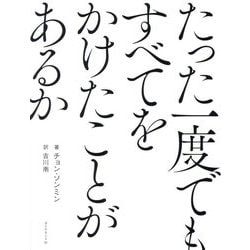 たった一度でも
すべてを
かけたことが
あるか
著 チョン・ソンミン
訳 吉川南
ダイヤモンド社